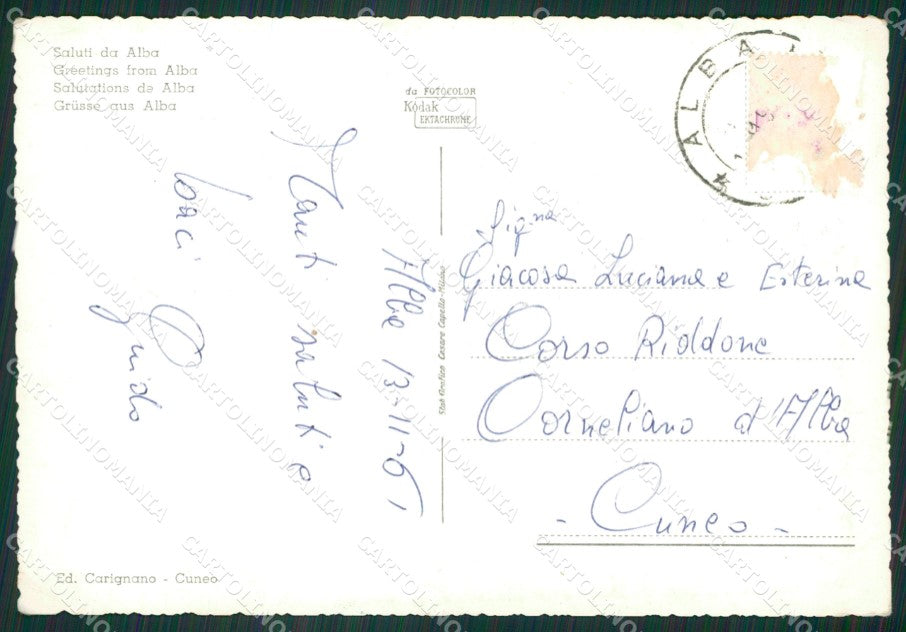 Saluti da Alba
Greetings from Alba
Salutations de Alba
Grüsse aus Alba
da FOTOCOLOR
Kodak
EKTACHROME
ALBA
Alba 13-11-61
Tanti saluti e
baci
Guido
Stab. Grafico Cesare Capello - Milano
Sig.na
Giacosa Luciana e Esterina
Corso Riddone
Corneliano d'Alba
- Cuneo -
Ed. Carignano - Cuneo
CARTOLINOMANIA